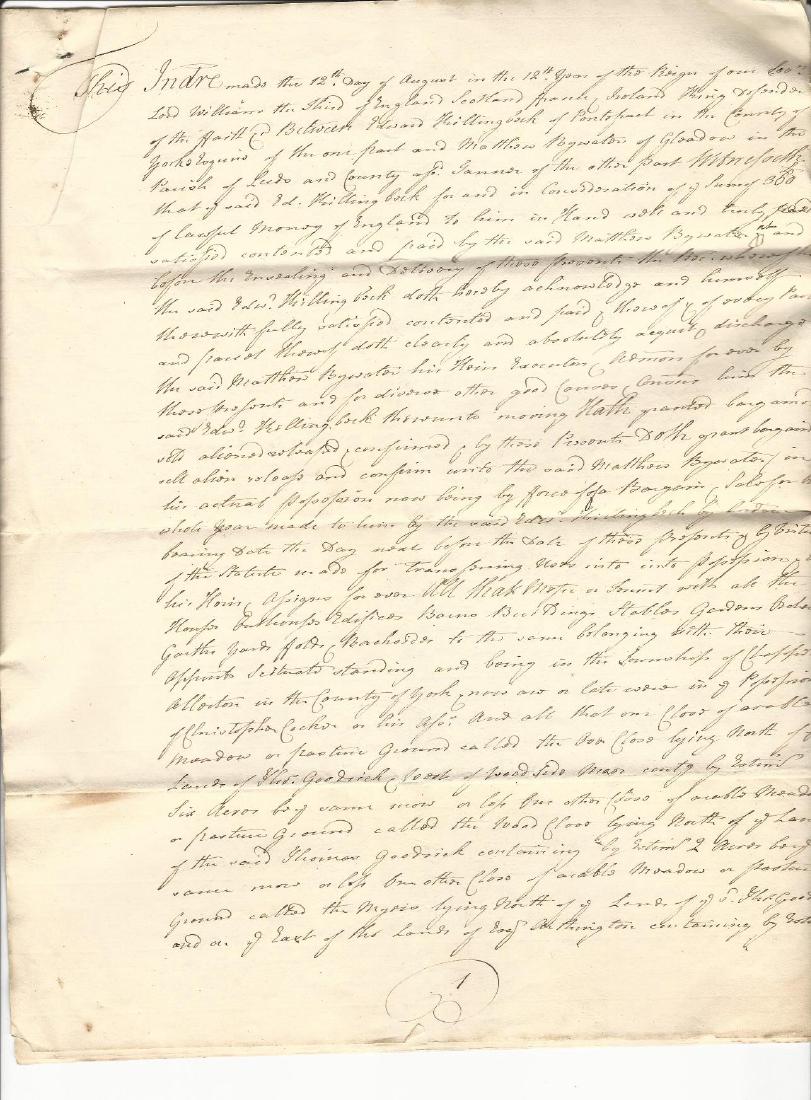 This Indre made the 12th Day of August in the 12th Year of the Reign of our Sov
Lord William the Third of England Scotland France & Ireland King Defender
of the Faith & Between Edward Killingbeck of Pontefract in the County of
York Esquire of the one part and Matthew Bywater of Gleadow in the
Parish of Leeds and County afsd. Tanner of the other part Witnesseth
that ye said Ed. Killingbeck for and in Consideration of ye Sum of 360
of lawful Money of England to him in Hand well and truly
satisfied contented and paid by the said Matthew Bywater at and
before the Ensealing and Delivery of these presents the Rec. whereof
the said Edwd. Killingbeck doth hereby acknowledge and himself
therewith fully satisfied contented and paid & thereof & of every Par
and parcel thereof doth clearly and absolutely acquit & discharge
the said Matthew Bywater his Heirs Executors & Admors for ever by
these presents and for diverse other good Causes & Cons him the
said Edwd. Killingbeck thereunto moving Hath granted bargained
sold aliened released & confirmed & by these Presents Doth grant bargain
sell alien release and confirm unto the said Matthew Bywater in
his actual possession now being by force of a Bargain & Sale for
whole year made to him by the said Edwd. Killingbeck by
bearing Date the Day next before the Date of these Presents & by Virtue
of the Statute made for transferring Uses into Possession
his Heirs & Assigns for ever All that Messe or Tenmt with all the
Houses Outhouses Edifices Barns Buildings Stables Gardens
Garths Yards folds & Backsides to the same belonging with their
Appurts Scituate standing and being in the Township of Chappel
Allerton in the County of York & now are or late were in ye Possession
of Christopher Cocker or his Afsd. And all that one Close of arable
Meadow or pasture Ground called the Clos lying North of
Lands of Thos. Goodrick & West of Wood Side contg by Estimn
Six Acres be ye same more or less One other Close of arable Meadow
or pasture Ground called the Wood Close lying North of ye Lan
of the said Thomas Goodrick containing by Estimn 2 Acres be ye
same more or less One other Close of arable Meadow or pasture
Ground called the Myers lying North of ye Lands of ye sd. Thos. Good
and on ye East of the Lands of Esqr Arthington containing by Esti
1